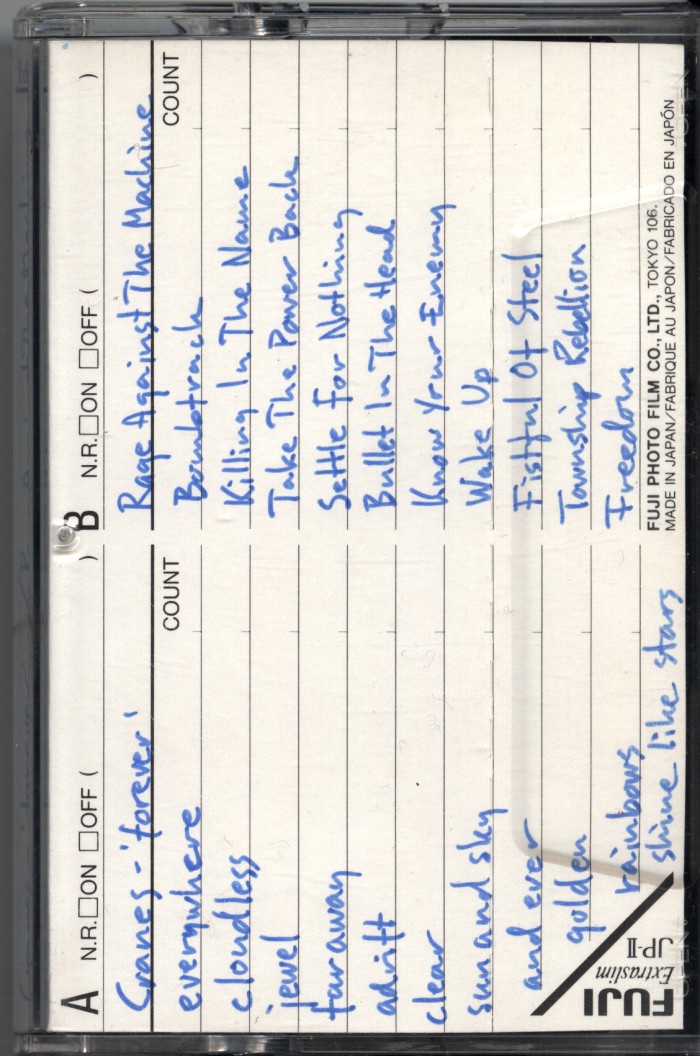 A N.R. □ON □OFF ( )
COUNT
Cranes - 'forever'
everywhere
cloudless
jewel
far away
adrift
clear
sun and sky
and ever
golden
rainbows
shine like stars
FUJI
Extraslim
JP-II
B N.R. □ON □OFF ( )
COUNT
Rage Against The Machine
Bombtrack
Killing In The Name
Take The Power Back
Settle For Nothing
Bullet In The Head
Know Your Enemy
Wake Up
Fistful Of Steel
Township Rebellion
Freedom
FUJI PHOTO FILM CO., LTD., TOKYO 106.
MADE IN JAPAN/FABRIQUE AU JAPON/FABRICADO EN JAPÓN